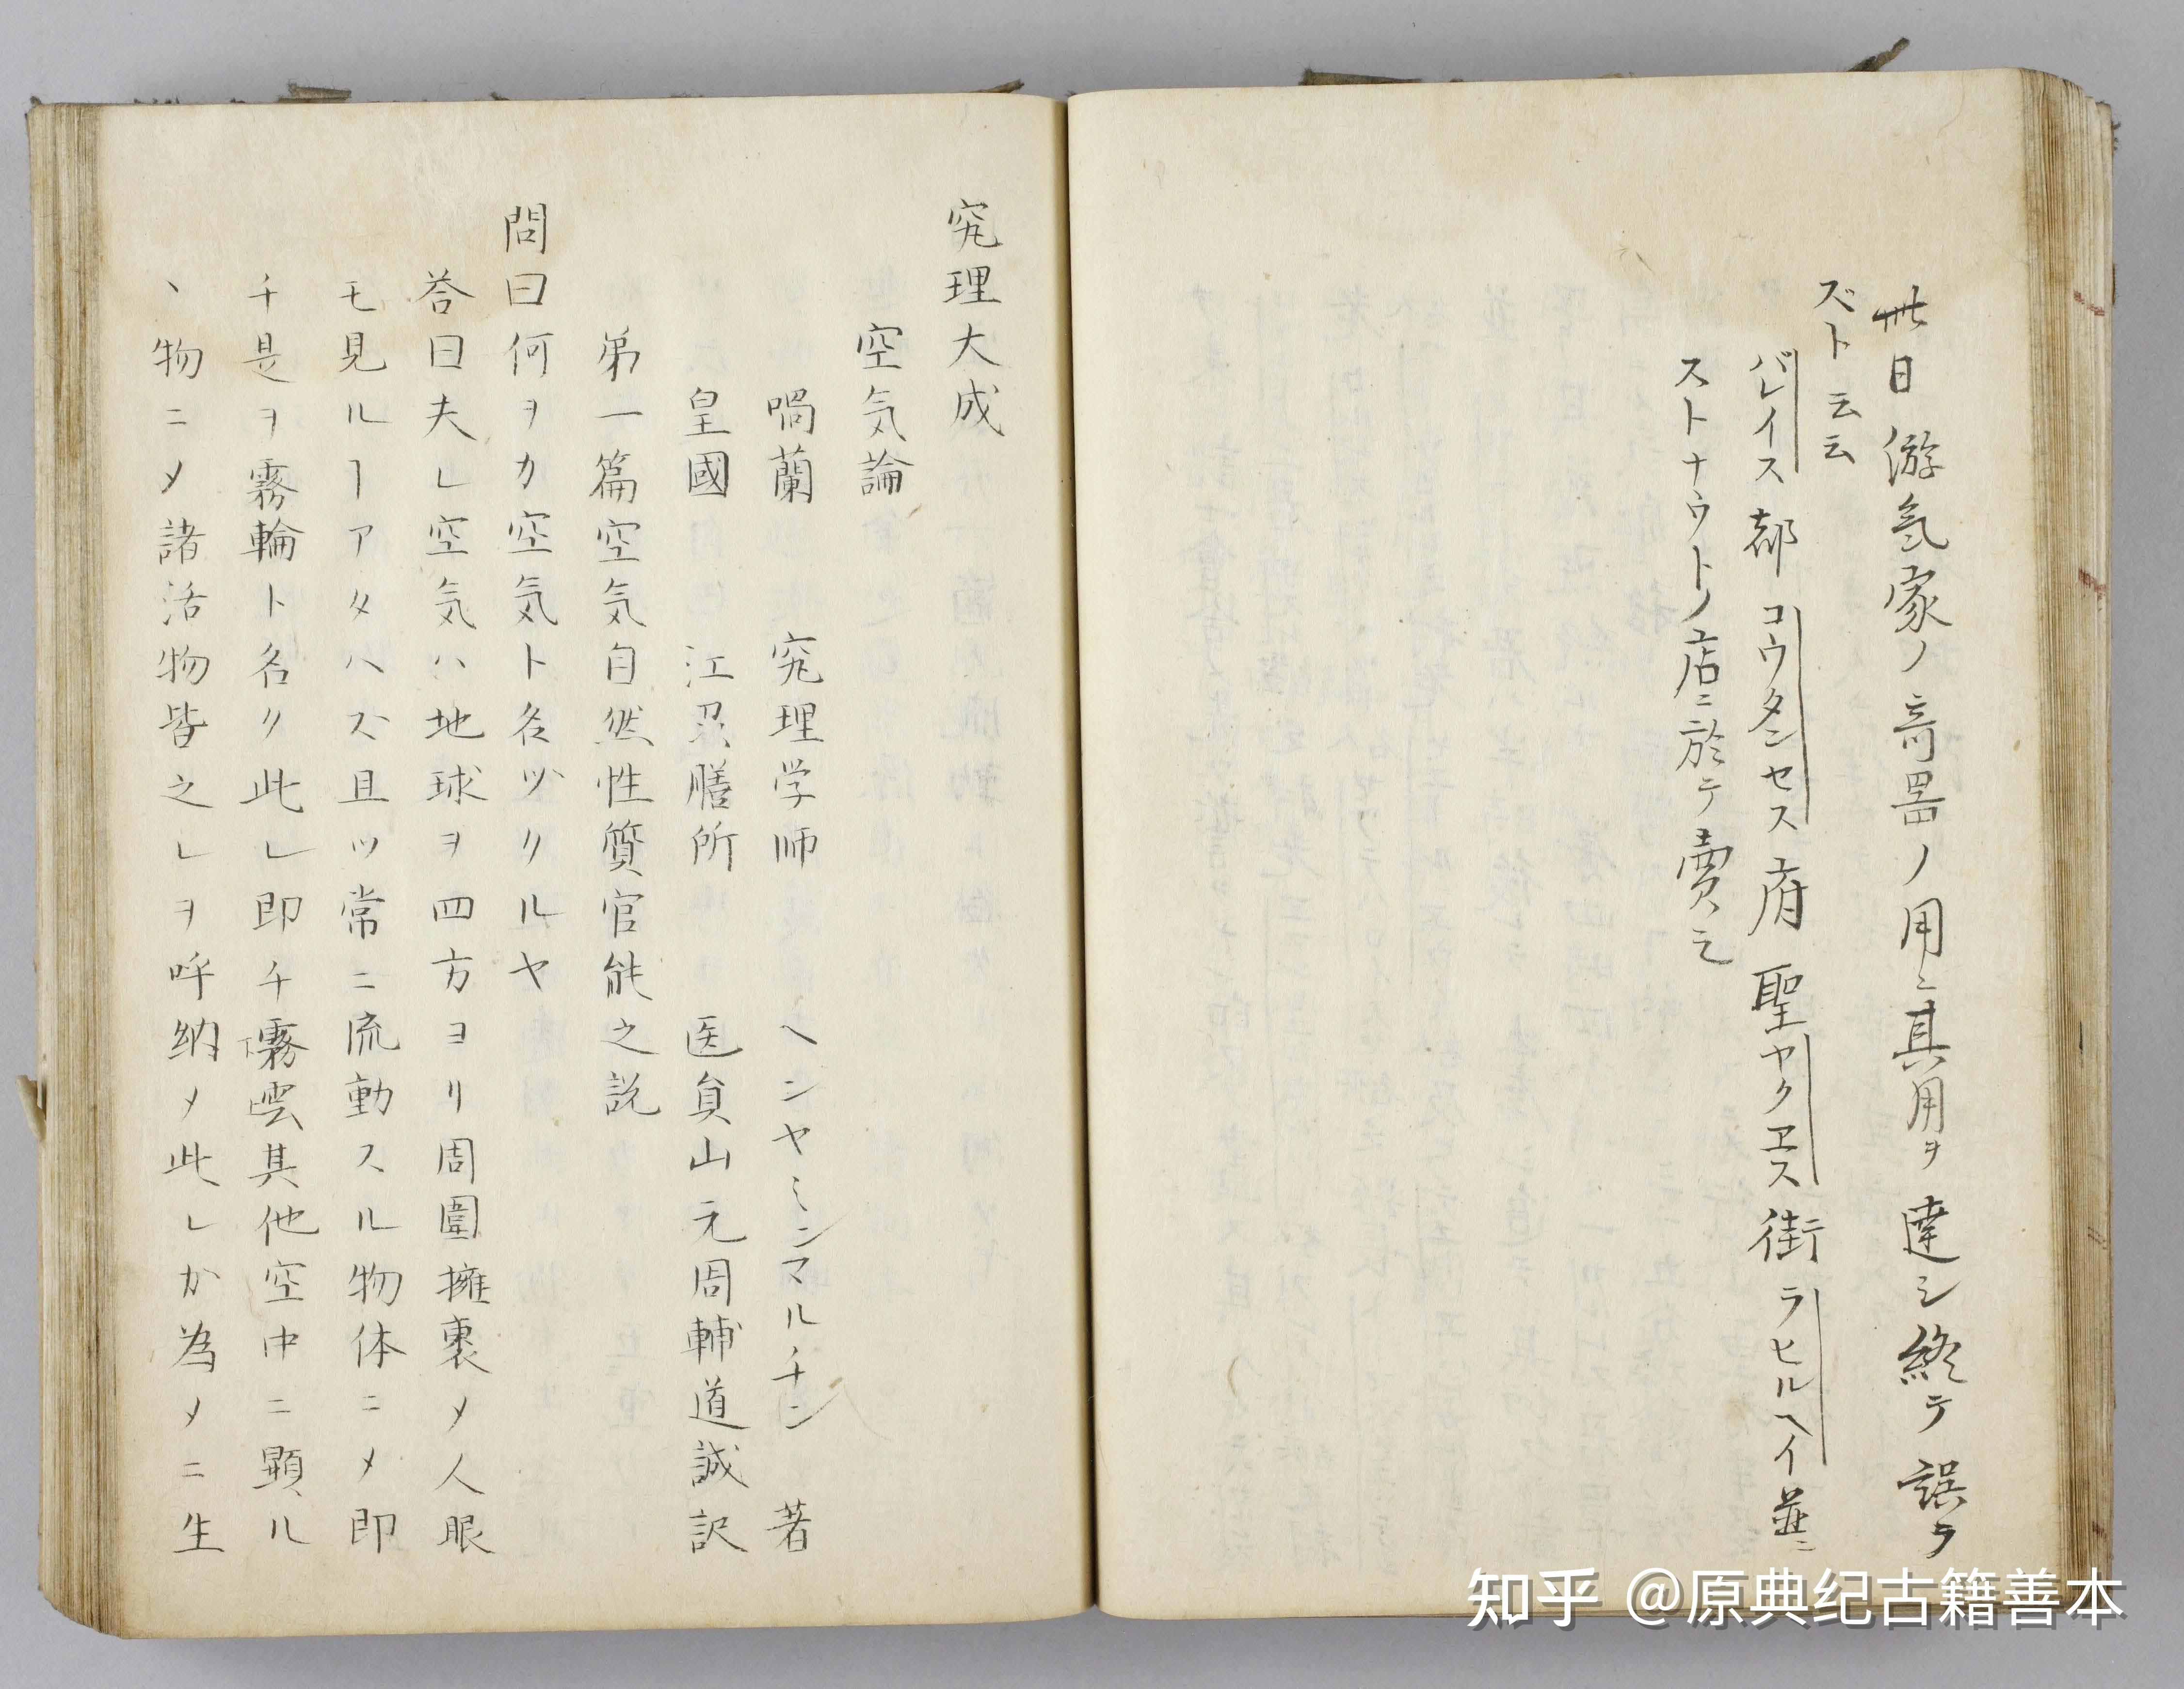 丗日游氣家ノ奇噐ノ用ニ其用ヲ達シ終テ誤ラ
ズト云云
バレイス都コウタンセス府聖ヤクヱス街ラヒルヘイ並ニ
ストナウトノ店ニ於テ賣之
究理大成
空気論
喎蘭 窮理学師 ヘンヤミンマルチン 著
皇國 江刕膳所 医員山元周輔道誠訳
第一篇空気自然性質官能之説
問曰何ヲカ空気ト名ヅクルヤ
答曰夫レ空気ハ地球ヲ四方ヨリ周圍擁裹メ人眼
モ見ルヿアタハズ且ツ常ニ流動スル物体ニメ即
チ是ヲ霧輪ト名ク此レ即チ霧雲其他空中ニ顕ル
ヽ物ニメ諸活物皆之レヲ呼納メ此レカ為メニ生
知乎 @原典纪古籍善本